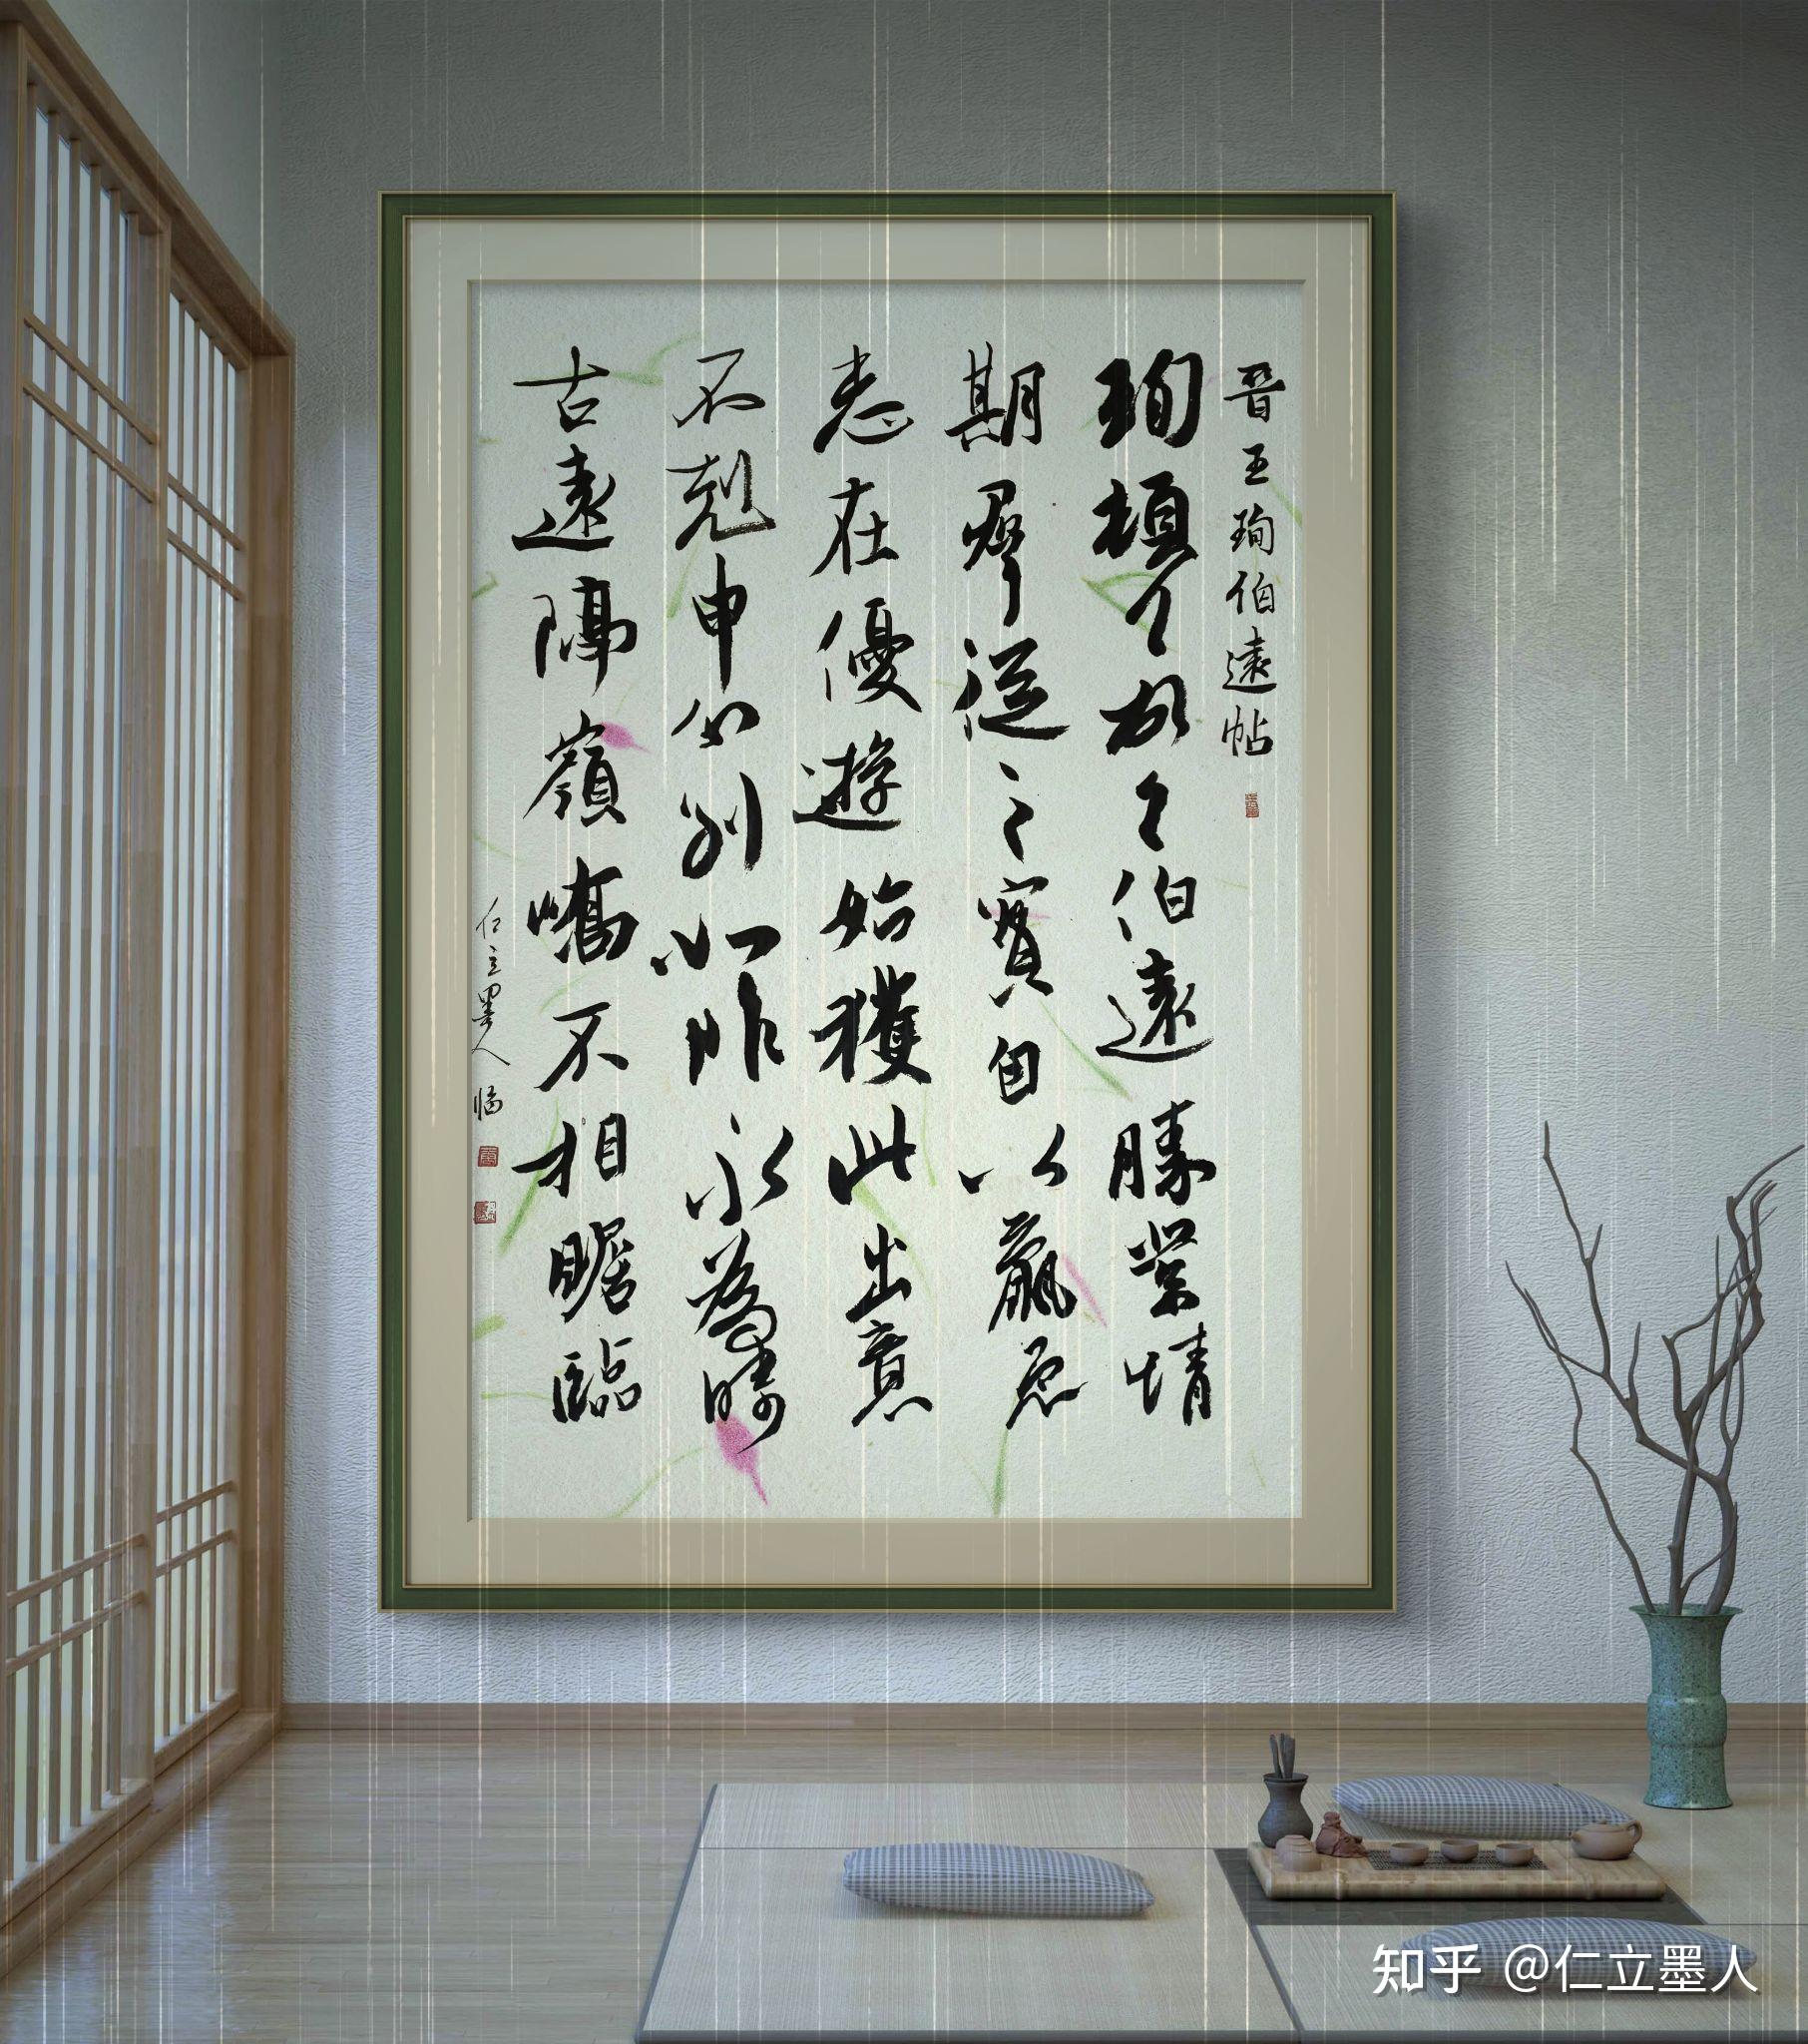 晉王珣伯遠帖
珣頓首頓首伯遠勝業情
期羣從之寶自以羸患
志在優遊始獲此出意
不剋申分別如昨永為疇
古遠隔嶺嶠不相瞻臨
仁立墨人临
知乎 @仁立墨人